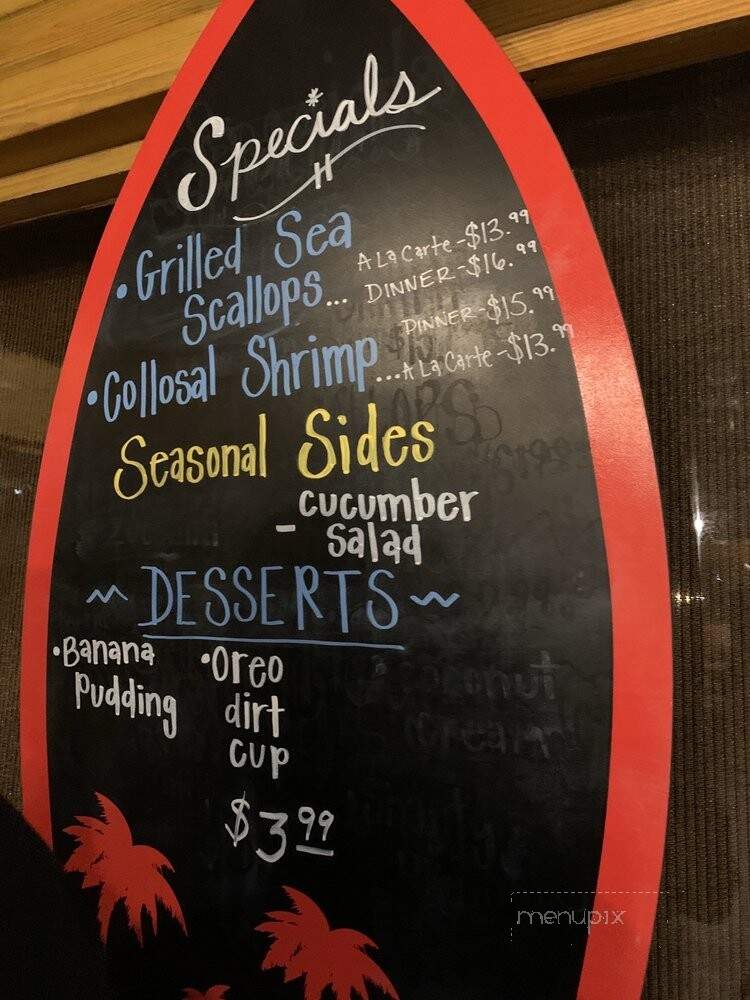 Specials
• Grilled Sea
Scallops... A La Carte - $13.99
DINNER - $16.99
• Collosal Shrimp... DINNER - $15.99
A La Carte - $13.99
Seasonal Sides
- cucumber
salad
~ DESSERTS ~
• Banana
Pudding
• Oreo
dirt
cup
$3.99
coconut
cream
menupix